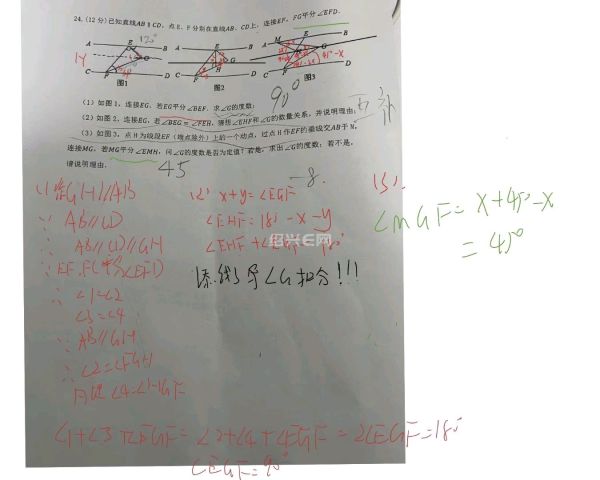 24. (12分) 已知直线AB∥CD, 点E、F分别在直线AB、CD上, 连接EF, FG平分∠EFD.
A E B
C F D
G
图1
A E B
G
H
C F D
图2
A M E B
45°-x
C F D
图3
90°
(1) 如图1, 连接EG, 若EG平分∠BEF, 求∠G的度数;
(2) 如图2, 连接EG, 若∠BEG=∠FEH, 猜想∠EHF和∠G的数量关系, 并说明理由;
互补
(3) 如图3, 点H为线段EF(端点除外)上的一个动点, 过点H作EF的垂线交AB于M,
连接MG, 若MG平分∠EMH, 问∠G的度数是否为定值? 若是, 求出∠G的度数; 若不是,
请说明理由.
45
-8-
(1) GH∥AB
∵ AB∥CD
∴ AB∥CD∥GH
∴ ∠1=∠2
∠3=∠4
∵ AB∥GH
(2) x+y=∠EGF
∠EHF=180-x-y
绍兴E网
∠G扣分!!!
(3)
∠MGF=x+45-x
=45°
∠1+∠3+∠EGF=∠2+∠4+∠EGF=2∠EGF=180
∠EGF=90°